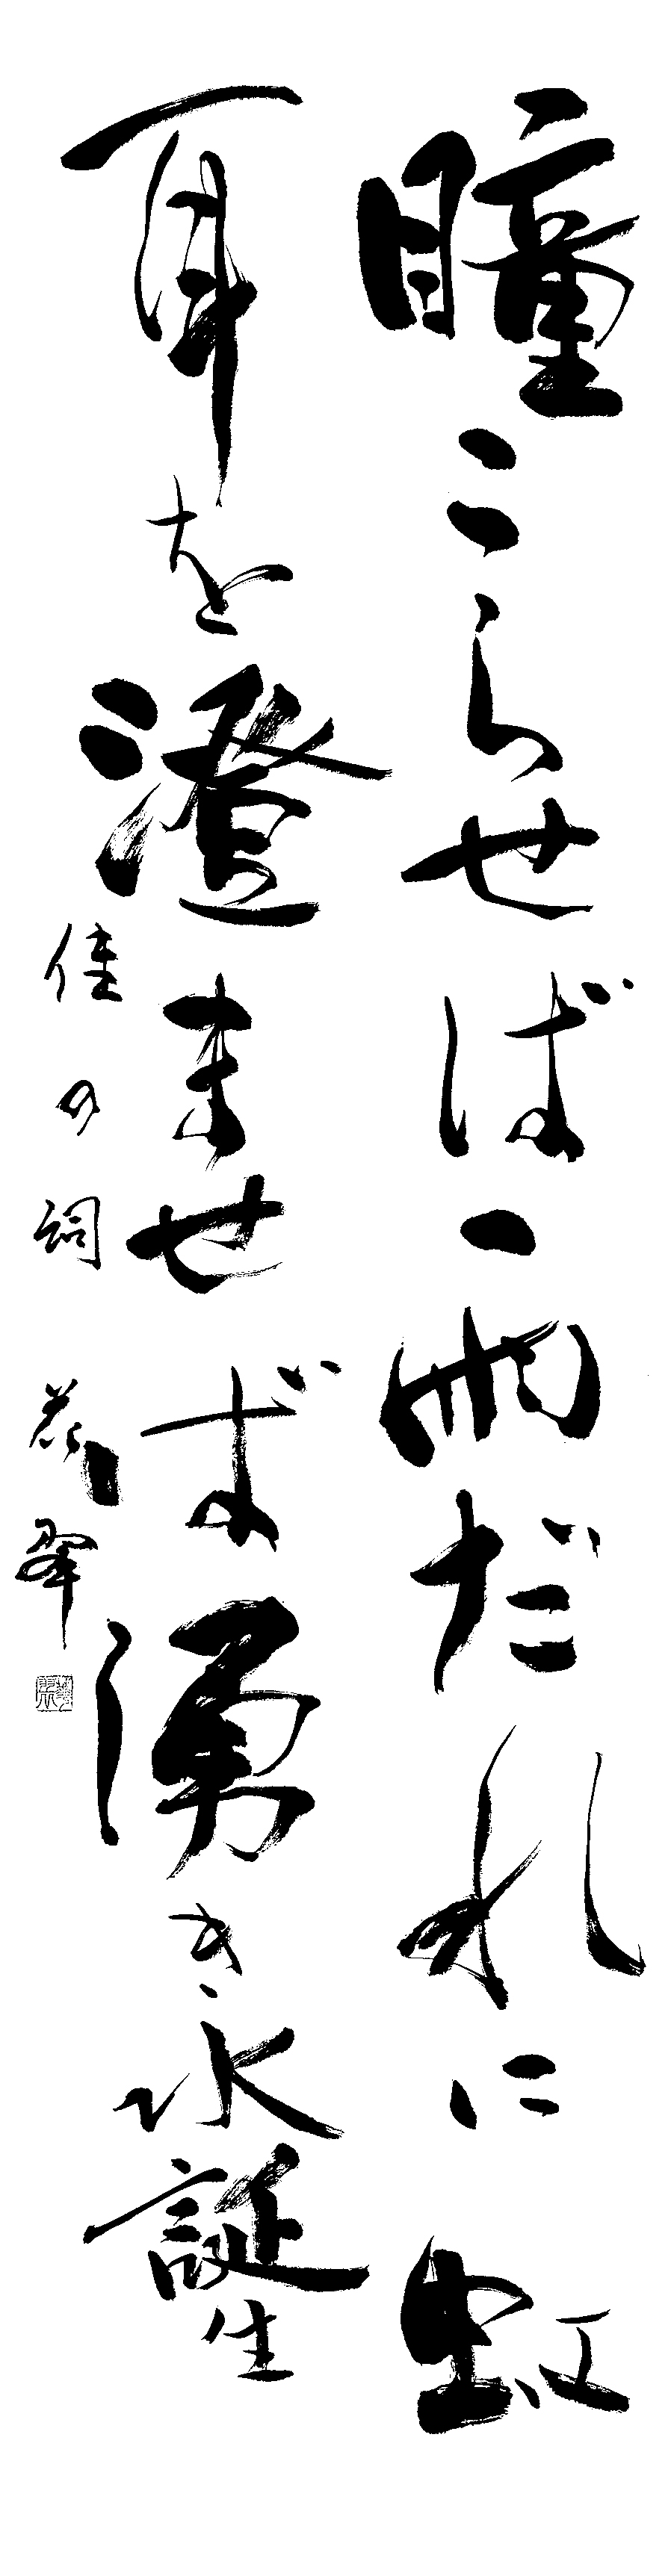 瞳こらせば一雨だれに虹
耳を澄ませば湧き水誕生
佳の詞 翠